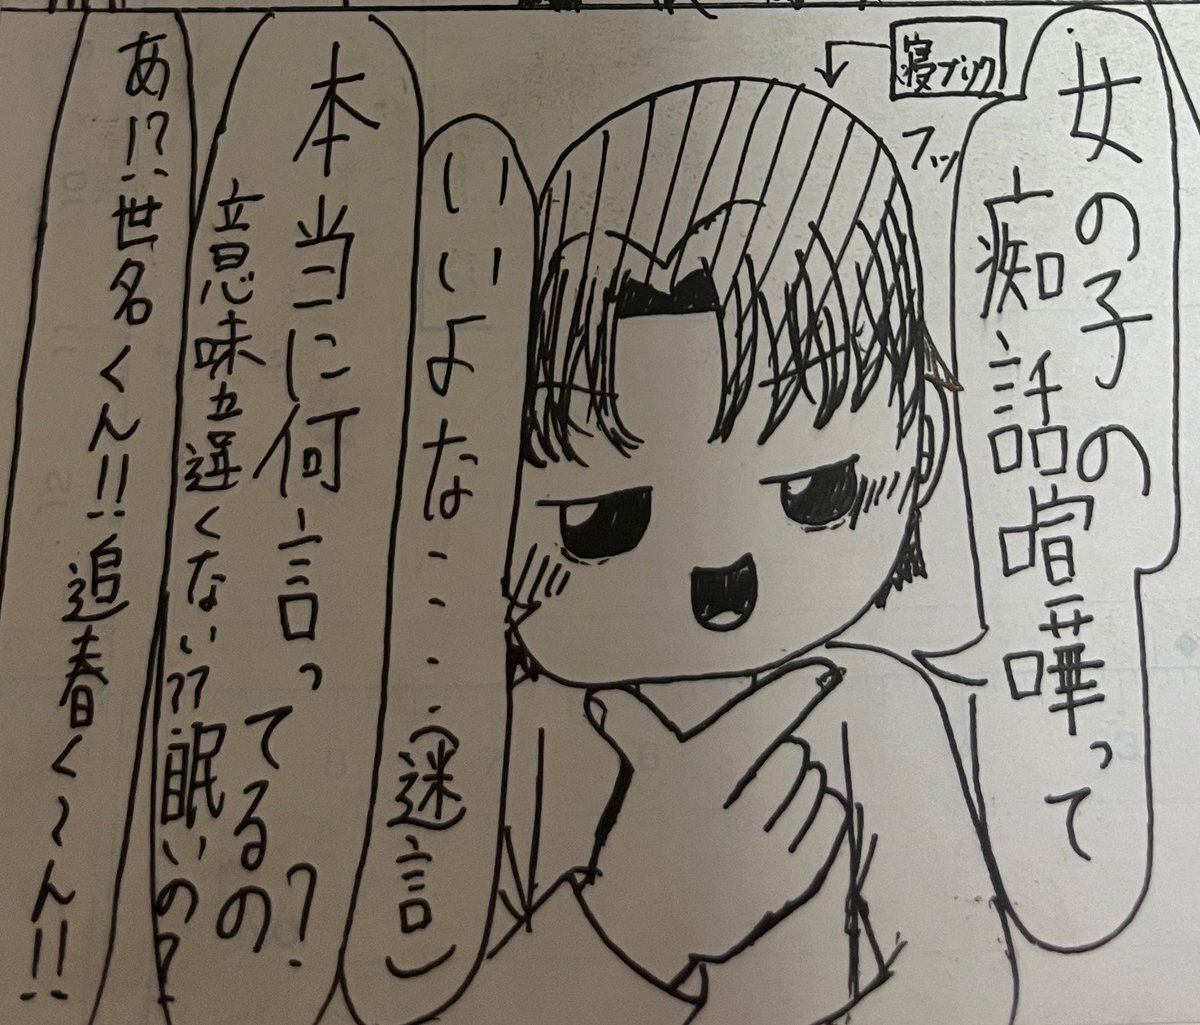 女の子の
痴話喧嘩って
寝ブリク
フッ
いいよな・・・・(迷言)
本当に何言ってるの?
意味立遅くない??眠いの?
あ!?世名くん!!追春く~ん!!